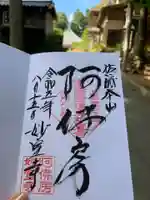 佐渡本山
阿佛房
令和五年
八月十五日
妙宣寺
阿佛房
妙宣寺